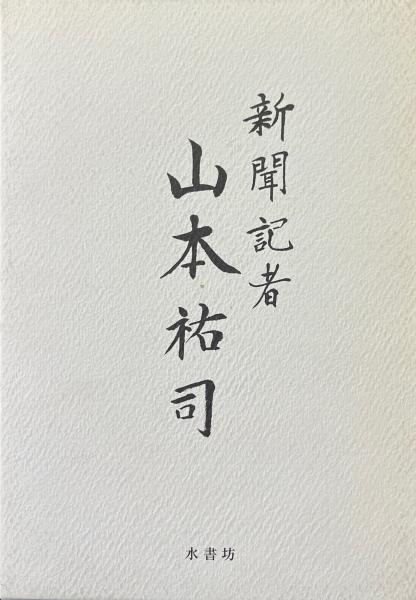 新聞記者
山本祐司
水書坊